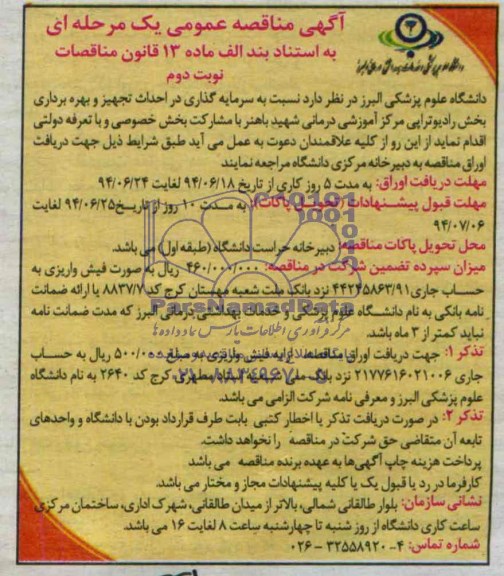 آگهی مناقصه عمومی یک مرحله ای
به استناد بند الف ماده ۱۳ قانون مناقصات
نوبت دوم
دانشگاه علوم پزشکی البرز در نظر دارد نسبت به سرمایه گذاری در احداث تجهیز و بهره برداری
بخش رادیوتراپی مرکز آموزشی درمانی شهید باهنر با مشارکت بخش خصوصی و با تعرفه دولتی
اقدام نماید از این رو از کلیه علاقمندان دعوت به عمل می آید طبق شرایط ذیل جهت دریافت
اوراق مناقصه به دبیرخانه مرکزی دانشگاه مراجعه نمایند
مهلت دریافت اوراق: به مدت ۵ روز کاری از تاریخ ۹۴/۰۶/۱۸ لغایت ۹۴/۰۶/۲۴
مهلت قبول پیشنهادات (تحویل پاکات): به مدت ۱۰ روز از تاریخ ۹۴/۰۶/۲۵ لغایت
۹۴/۰۷/۰۶
محل تحویل پاکات مناقصه: دبیرخانه حراست دانشگاه (طبقه اول) می باشد.
میزان سپرده تضمین شرکت در مناقصه: ۴۶۰/۰۰۰/۰۰۰ ریال به صورت فیش واریزی به
حساب جاری ۴۴۲۴۵۸۶۳/۹۱ نزد بانک ملت شعبه مهستان کرج کد ۸۸۳۷/۷ یا ارائه ضمانت
نامه بانکی به نام دانشگاه علوم پزشکی و خدمات بهداشتی درمانی البرز که مدت ضمانت نامه
نباید کمتر از ۳ ماه باشد.
تذکر ۱: جهت دریافت اوراق مناقصه ارایه فیش واریزی به مبلغ ۵۰۰/۰۰۰ ریال به حساب
جاری ۲۱۷۷۶۱۶۰۲۱۰۰۶ نزد بانک ملی شعبه مطهری کرج کد ۲۶۴۰ به نام دانشگاه
علوم پزشکی البرز و معرفی نامه شرکت الزامی می باشد.
تذکر ۲: در صورت دریافت تذکر یا اخطار کتبی بابت طرف قرارداد بودن با دانشگاه و واحدهای
تابعه آن متقاضی حق شرکت در مناقصه را نخواهد داشت.
پرداخت هزینه چاپ آگهی ها به عهده برنده مناقصه می باشد
کارفرما در رد یا قبول یک یا کلیه پیشنهادات مجاز و مختار می باشد.
نشانی سازمان: بلوار طالقانی شمالی، بالاتر از میدان طالقانی، شهرک اداری، ساختمان مرکزی
ساعت کاری دانشگاه از روز شنبه تا چهارشنبه ساعت ۸ لغایت ۱۶ می باشد.
شماره تماس: ۴-۳۲۵۵۸۹۲۰ - ۰۲۶
ParsNamadData